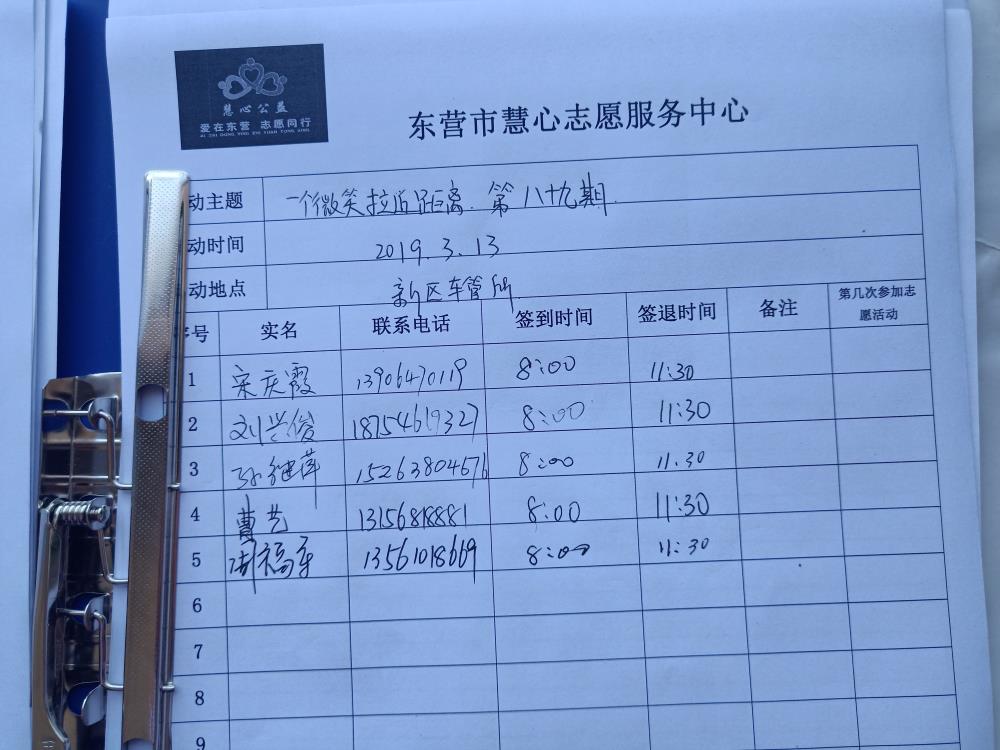 慧心公益
爱在东营 志愿同行
AI ZAI DONG YING ZHI YUAN TONG XING
东营市慧心志愿服务中心
动主题 一个微笑拉近距离.第八十九期.
动时间 2019.3.13
动地点 新区车管所.
号 实名 联系电话 签到时间 签退时间 备注 第几次参加志愿活动
1 宋庆霞 13906470119 8:00 11:30
2 刘兴俊 18754619327 8:00 11:30
3 孙继萍 15263804676 8:00 11.30
4 曹艺 13156818881 8:00 11:30
5 13561018669 8:00 11:30
6
7
8
9